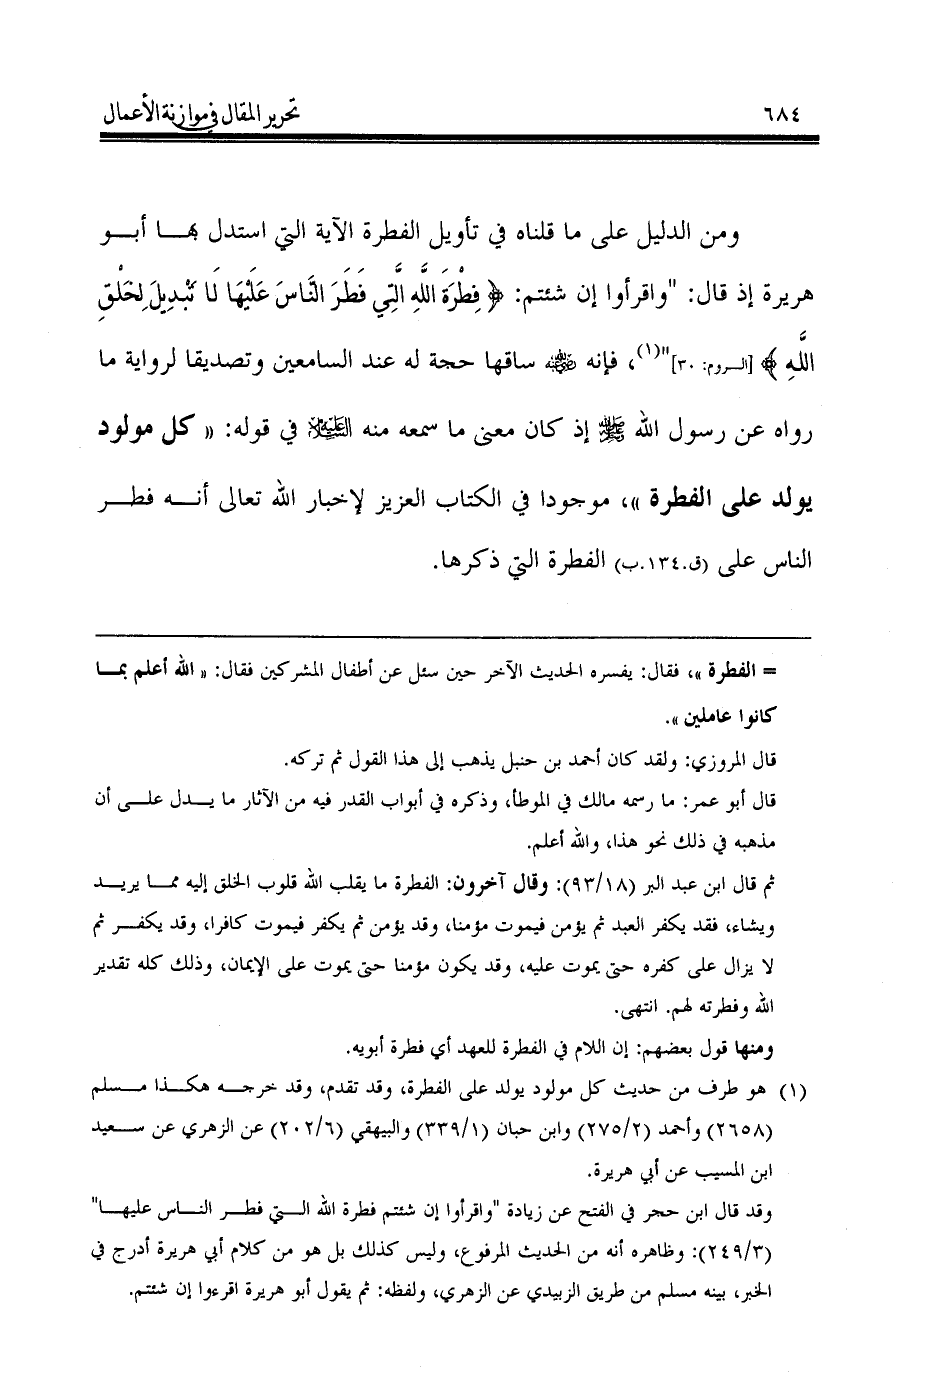 ٦٨٤ تحرير المقال في موازنة الأعمال
ومن الدليل على ما قلناه في تأويل الفطرة الآية التي استدل بها أبو
هريرة إذ قال: "واقرأوا إن شئتم: ﴿ فِطْرَةَ اللَّهِ الَّتِي فَطَرَ النَّاسَ عَلَيْهَا لَا تَبْدِيلَ لِخَلْقِ
اللَّهِ ﴾ [الروم: ٣٠]"(١)، فإنه ﵁ ساقها حجة له عند السامعين وتصديقا لرواية ما
رواه عن رسول الله ﷺ إذ كان معنى ما سمعه منه العَلَيْهِ السَّلام في قوله: « كل مولود
يولد على الفطرة »، موجودا في الكتاب العزيز لإخبار الله تعالى أنه فطر
الناس على (ق.١٣٤.ب) الفطرة التي ذكرها.
= الفطرة »، فقال: يفسره الحديث الآخر حين سئل عن أطفال المشركين فقال: « الله أعلم بما
كانوا عاملين ».
قال المروزي: ولقد كان أحمد بن حنبل يذهب إلى هذا القول ثم تركه.
قال أبو عمر: ما رسمه مالك في الموطأ، وذكره في أبواب القدر فيه من الآثار ما يدل على أن
مذهبه في ذلك نحو هذا، والله أعلم.
ثم قال ابن عبد البر (٩٣/١٨): وقال آخرون: الفطرة ما يقلب الله قلوب الخلق إليه مما يريد
ويشاء، فقد يكفر العبد ثم يؤمن فيموت مؤمنا، وقد يؤمن ثم يكفر فيموت كافرا، وقد يكفر ثم
لا يزال على كفره حتى يموت عليه، وقد يكون مؤمنا حتى يموت على الإيمان، وذلك كله تقدير
الله وفطرته لهم. انتهى.
ومنها قول بعضهم: إن اللام في الفطرة للعهد أي فطرة أبويه.
(١) هو طرف من حديث كل مولود يولد على الفطرة، وقد تقدم، وقد خرجه هكذا مسلم
(٢٦٥٨) وأحمد (٢٧٥/٢) وابن حبان (٣٣٩/١) والبيهقي (٢٠٢/٦) عن الزهري عن سعيد
ابن المسيب عن أبي هريرة.
وقد قال ابن حجر في الفتح عن زيادة "واقرأوا إن شئتم فطرة الله التي فطر الناس عليها"
(٢٤٩/٣): وظاهره أنه من الحديث المرفوع، وليس كذلك بل هو من كلام أبي هريرة أدرج في
الخبر، بينه مسلم من طريق الزبيدي عن الزهري، ولفظه: ثم يقول أبو هريرة اقرءوا إن شئتم.